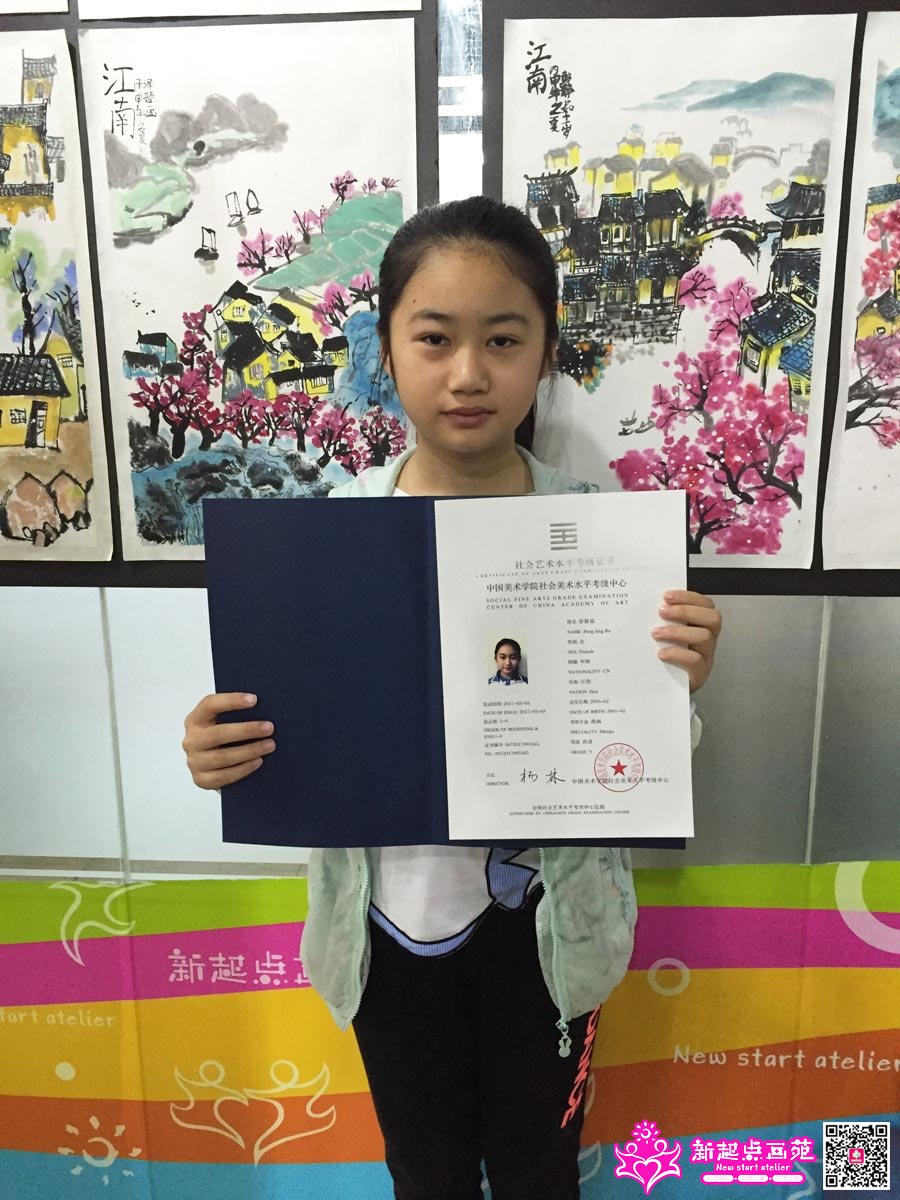 江南
江南
丙申年之夏
社会艺术水平考级证书
CERTIFICATE OF ARTS GRADE EXAMINATION OF CHINA
中国美术学院社会美术水平考级中心
SOCIAL FINE ARTS GRADE EXAMINATION
CENTER OF CHINA ACADEMY OF ART
姓名: 彭静茹
NAME: Peng Jing Ru
性别: 女
SEX: Female
国籍: 中国
NATIONALITY: CN
民族: 汉族
NATION: Han
出生日期: 2005-02
DATE OF BIRTH: 2005-02
考级专业: 漫画
SPECIALITY: Manga
等级: 玖级
GRADE: 9
发证时间: 2017-03-03
DATE OF ISSUE: 2017-03-03
起止级: 1-9
GRADE OF BEGINNING &
END: 1-9
证书编号:
NO.:
主任:
DIRECTOR:
杨林
中国美术学院社会美术水平考级中心
全国社会艺术水平考级中心监制
SUPERVISED BY CHINA ARTS GRADE EXAMINATION CENTER
新起点画
tart atelier
New start atelier
新起点画苑
New start atelier